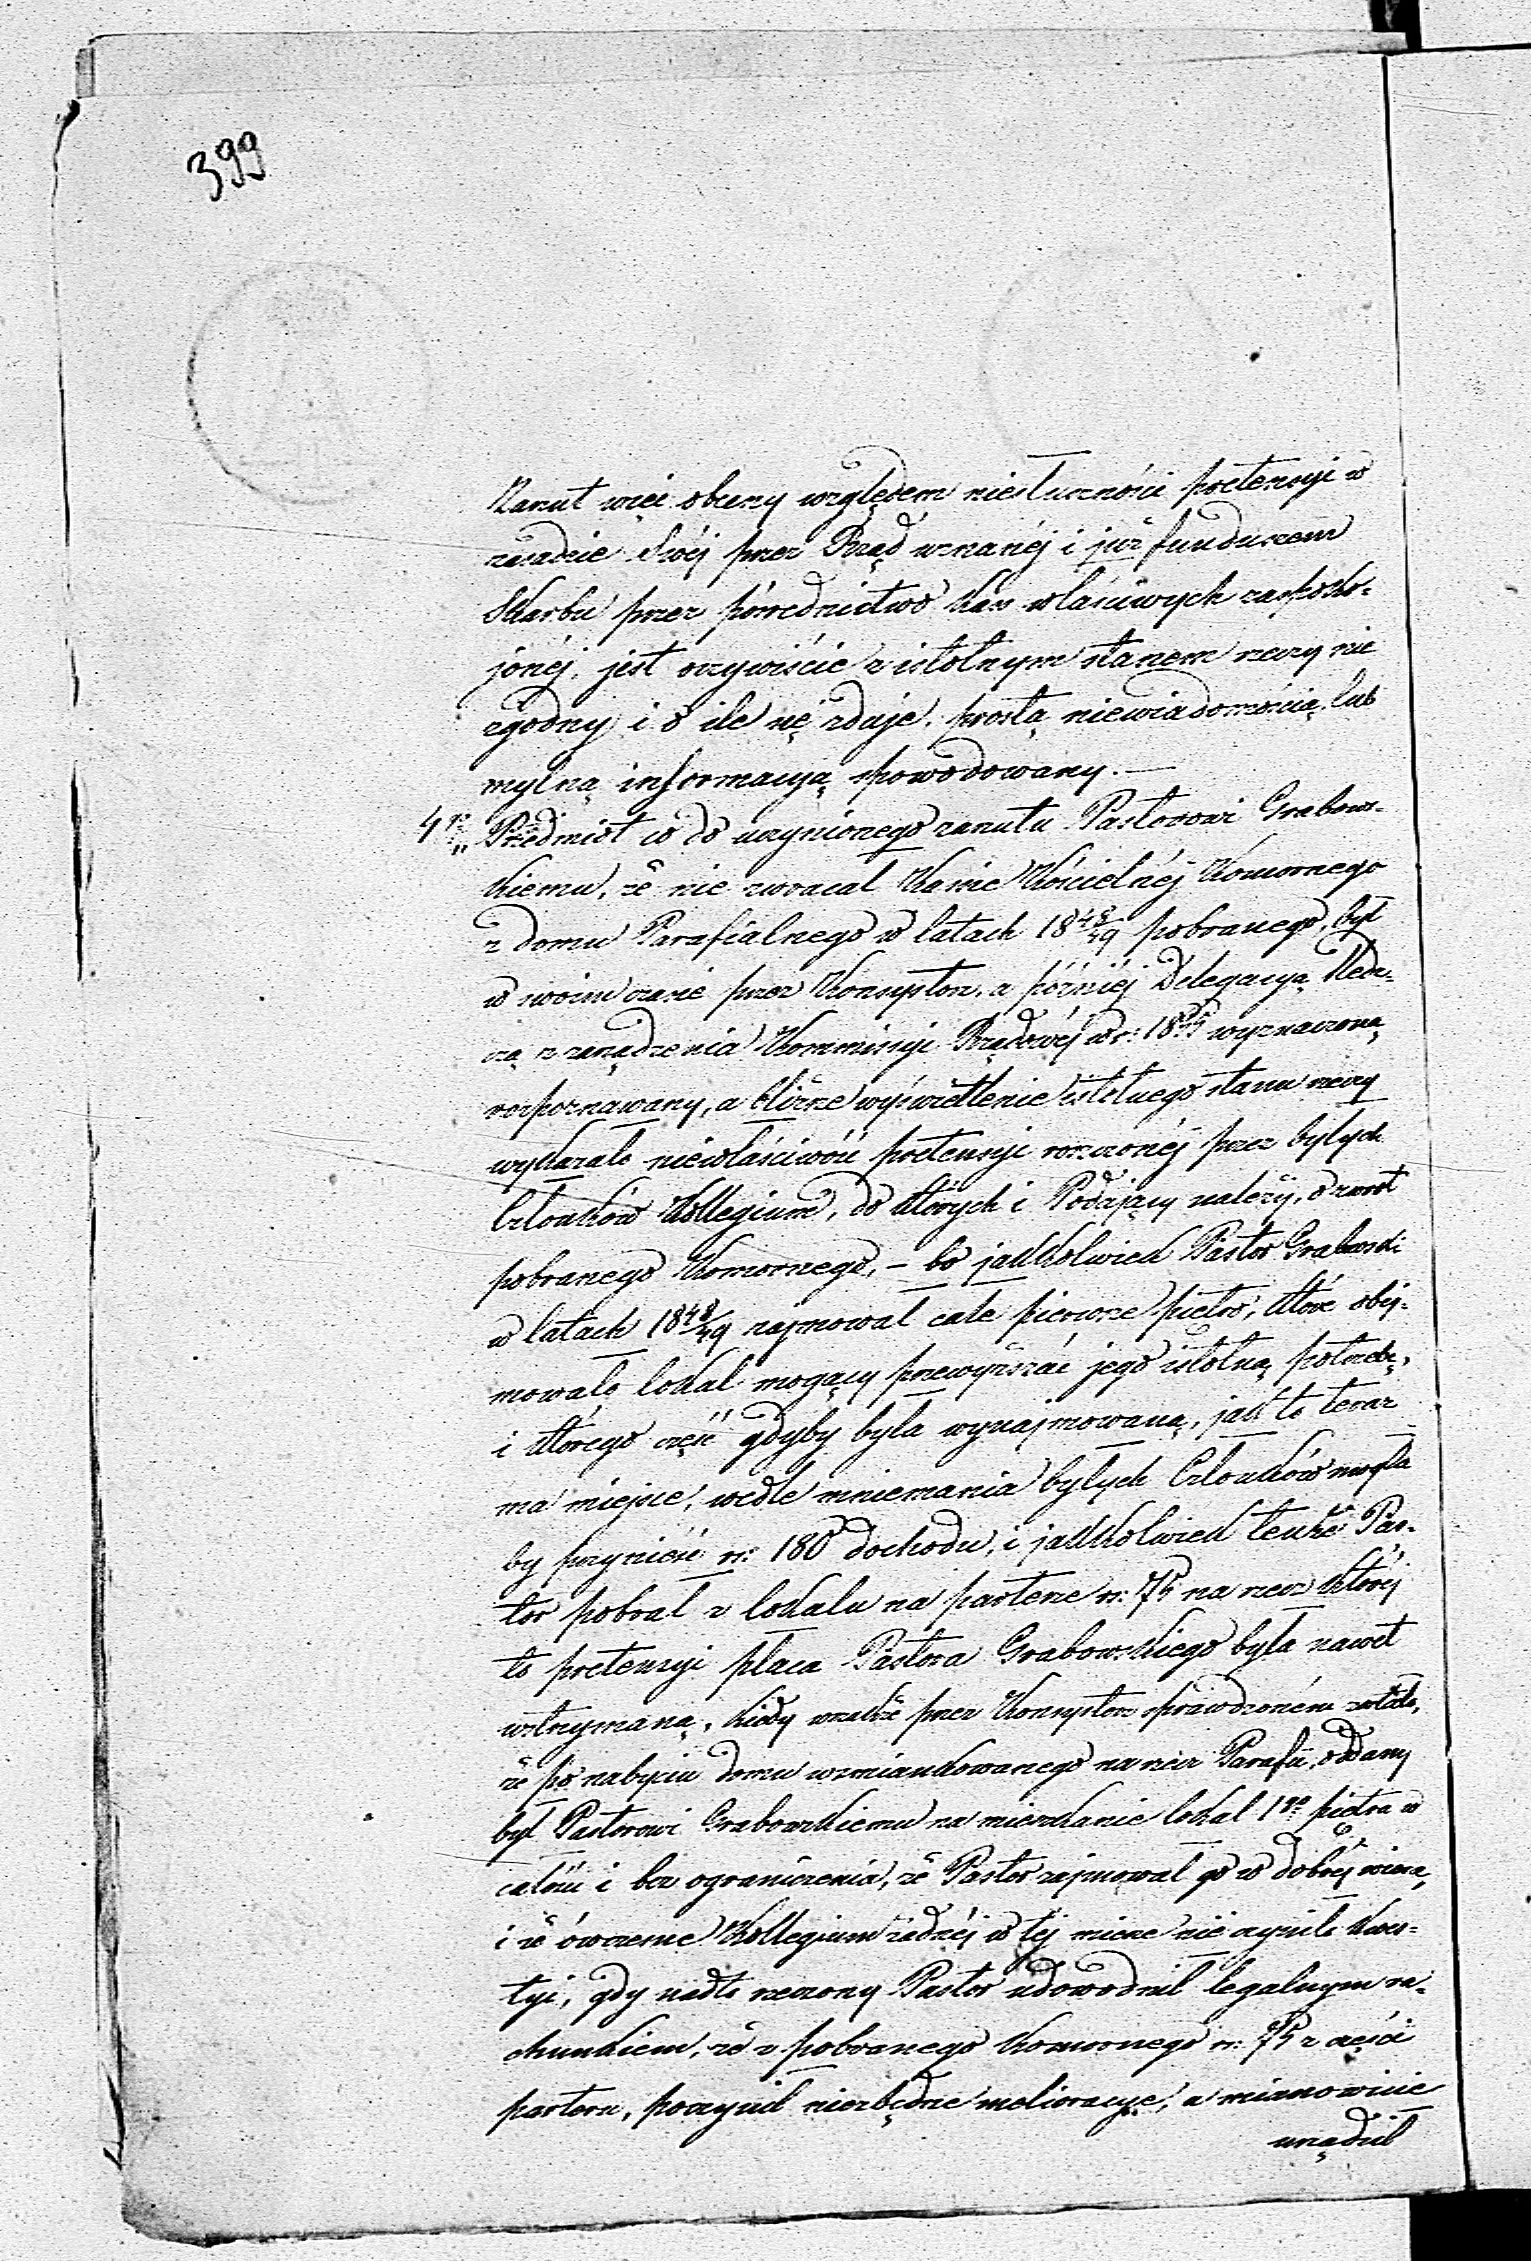 399
Zarzut więc obecny względem niesłuszności pretensyi w
zasadzie swéj przez Rząd uznanéj i już funduszem
Skarbu przez pośrednictwo Kass właściwych zaspoko-
jonéj, jest oczywiście z istotnym stanem rzeczy nie
zgodny i o ile się zdaje, prostą niewiadomością lub
mylną informacyą spowodowany. —
4to „ Przedmiot co do uczynionego zarzutu Pastorowi Grabows-
kiemu, że nie zwracał Kassie Kościelnéj Komornego
z domu Parafialnego w latach 18 48/49 pobranego, był
w swoim czasie przez Konsystorz, a późniéj Delegacyą Śled-
czą z zarządzenia Kommissyi Rządowéj w r: 1855 wyznaczoną
rozpoznawany, a bliższe wyświetlenie istotnego stanu rzeczy
wykazało niewłaściwość pretensyi roszczonéj przez byłych
Członków Kollegium, do których i Podający należy, o zwrot
pobranego Komornego, — bo jakkolwiek Pastor Grabowski
w latach 18 48/49 zajmował całe pierwsze piętro, które obej-
mowało lokal mogący przewyższać jego istotną potrzebę,
i którego część gdyby była wynajmowaną, jak to teraz
ma miejsce, wedle mniemania byłych Członków mogła
by przynieść rs: 180 dochodu, i jakkolwiek tenże Pas-
tor pobrał z lokalu na parterze rs: 75 na rzecz któréj
to pretensyi płaca Pastora Grabowskiego była nawet
wstrzymaną, kiedy wszakże przez Konsystorz sprawdzoném zostało,
że po nabyciu domu wzmiankowanego na rzecz Parafii, oddany
był Pastorowi Grabowskiemu na mieszkanie lokal 1go piętra w
całości i bez ograniczenia, że Pastor zajmował go w dobréj wierze,
i że ówczesne Kollegium żadnéj w téj mierze nie czyniło kwes-
tyi, gdy nadto rzeczony Pastor udowodnił legalnym ra-
chunkiem, że z pobranego Komornego rs: 75 z części
parteru, poczynił niezbędne melioracye, a mianowicie
urządził